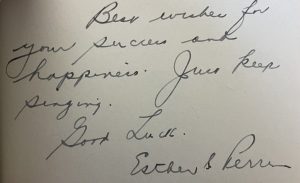 Best wishes for
your success and
happiness. Just keep
singing.
Good Luck.
Esther S Perrin